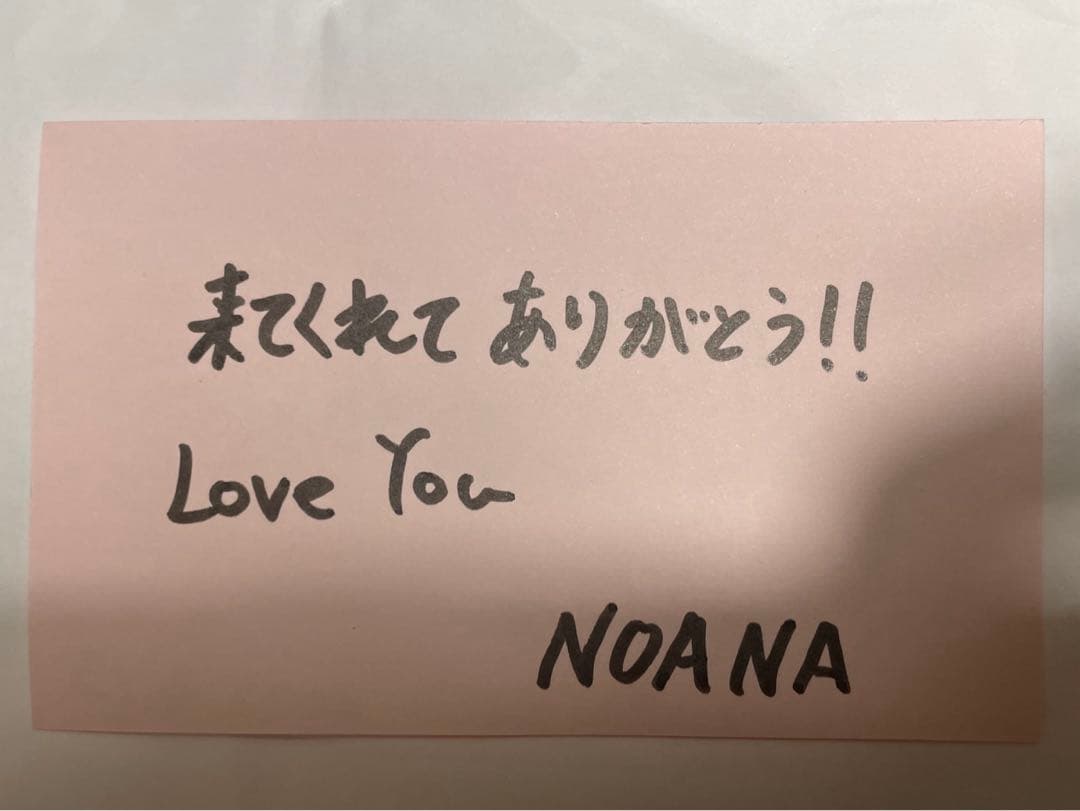 来てくれて ありがとう!!
Love You
NOANA